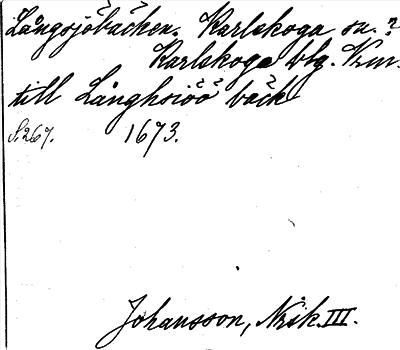 Långsjöbäcken. Karlskoga sn.?
Karlskoga bsg. Vrm.
till Långhsiöö bäck
S. 267. 1673.
Johansson, Nrik. III.